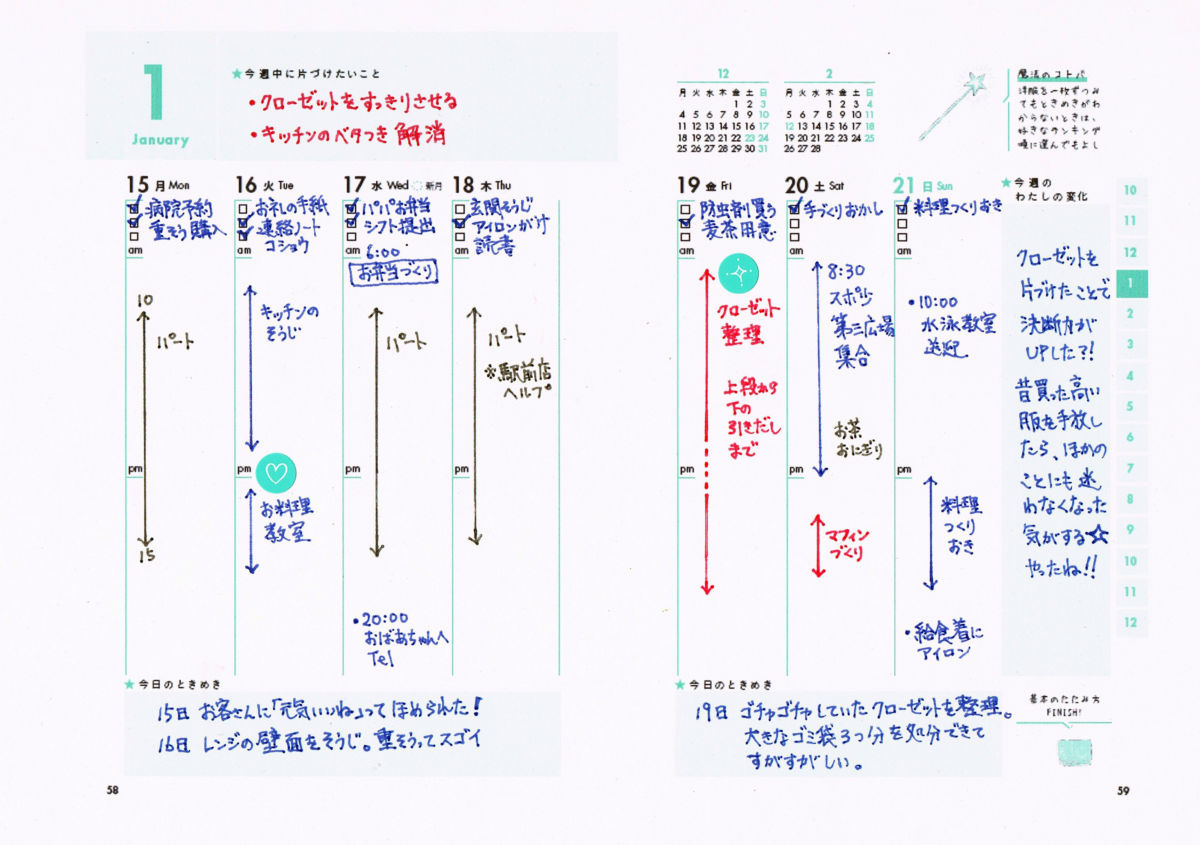 1
January
★今週中に片づけたいこと
・クローゼットをすっきりさせる
・キッチンのベタつき解消
12
月 火 水 木 金 土 日
1 2 3
4 5 6 7 8 9 10
11 12 13 14 15 16 17
18 19 20 21 22 23 24
25 26 27 28 29 30 31
2
月 火 水 木 金 土 日
1 2 3 4
5 6 7 8 9 10 11
12 13 14 15 16 17 18
19 20 21 22 23 24 25
26 27 28
魔法のコトバ
洋服を一枚ずつみ
てもときめきがわ
からないときは、
好きなランキング
順に選んでもよし
15 月 Mon
病院予約
重そう購入
am
10
パート
pm
15
16 火 Tue
お礼の手紙
連絡ノート
コショウ
am
キッチンの
そうじ
pm
お料理
教室
17 水 Wed 新月
パパお弁当
シフト提出
am
6:00
お弁当づくり
パート
pm
・20:00
おばあちゃんへ
Tel
18 木 Thu
玄関そうじ
アイロンがけ
読書
am
パート
※駅前店
ヘルプ
pm
19 金 Fri
防虫剤買う
麦茶用意
am
クローゼット
整理
上段から
下の
引きだし
まで
pm
20 土 Sat
手づくりおかし
am
8:30
スポ少
第三広場
集合
お茶
おにぎり
pm
マフィン
づくり
21 日 Sun
料理つくりおき
am
・10:00
水泳教室
送迎
pm
料理
つくり
おき
・給食着に
アイロン
★今週の
わたしの変化
クローゼットを
片づけたことで
決断力が
UPした?!
昔買った高い
服を手放し
たら、ほかの
ことにも迷
わなくなった
気がする☆
やったね!!
10
11
12
1
2
3
4
5
6
7
8
9
10
11
12
★今日のときめき
15日 お客さんに「元気いいね」ってほめられた!
16日 レンジの壁面をそうじ。重そうってスゴイ
★今日のときめき
19日 ゴチャゴチャしていたクローゼットを整理。
大きなゴミ袋3つ分を処分できて
すがすがしい。
基本のたたみ方
FINISH!
58
59